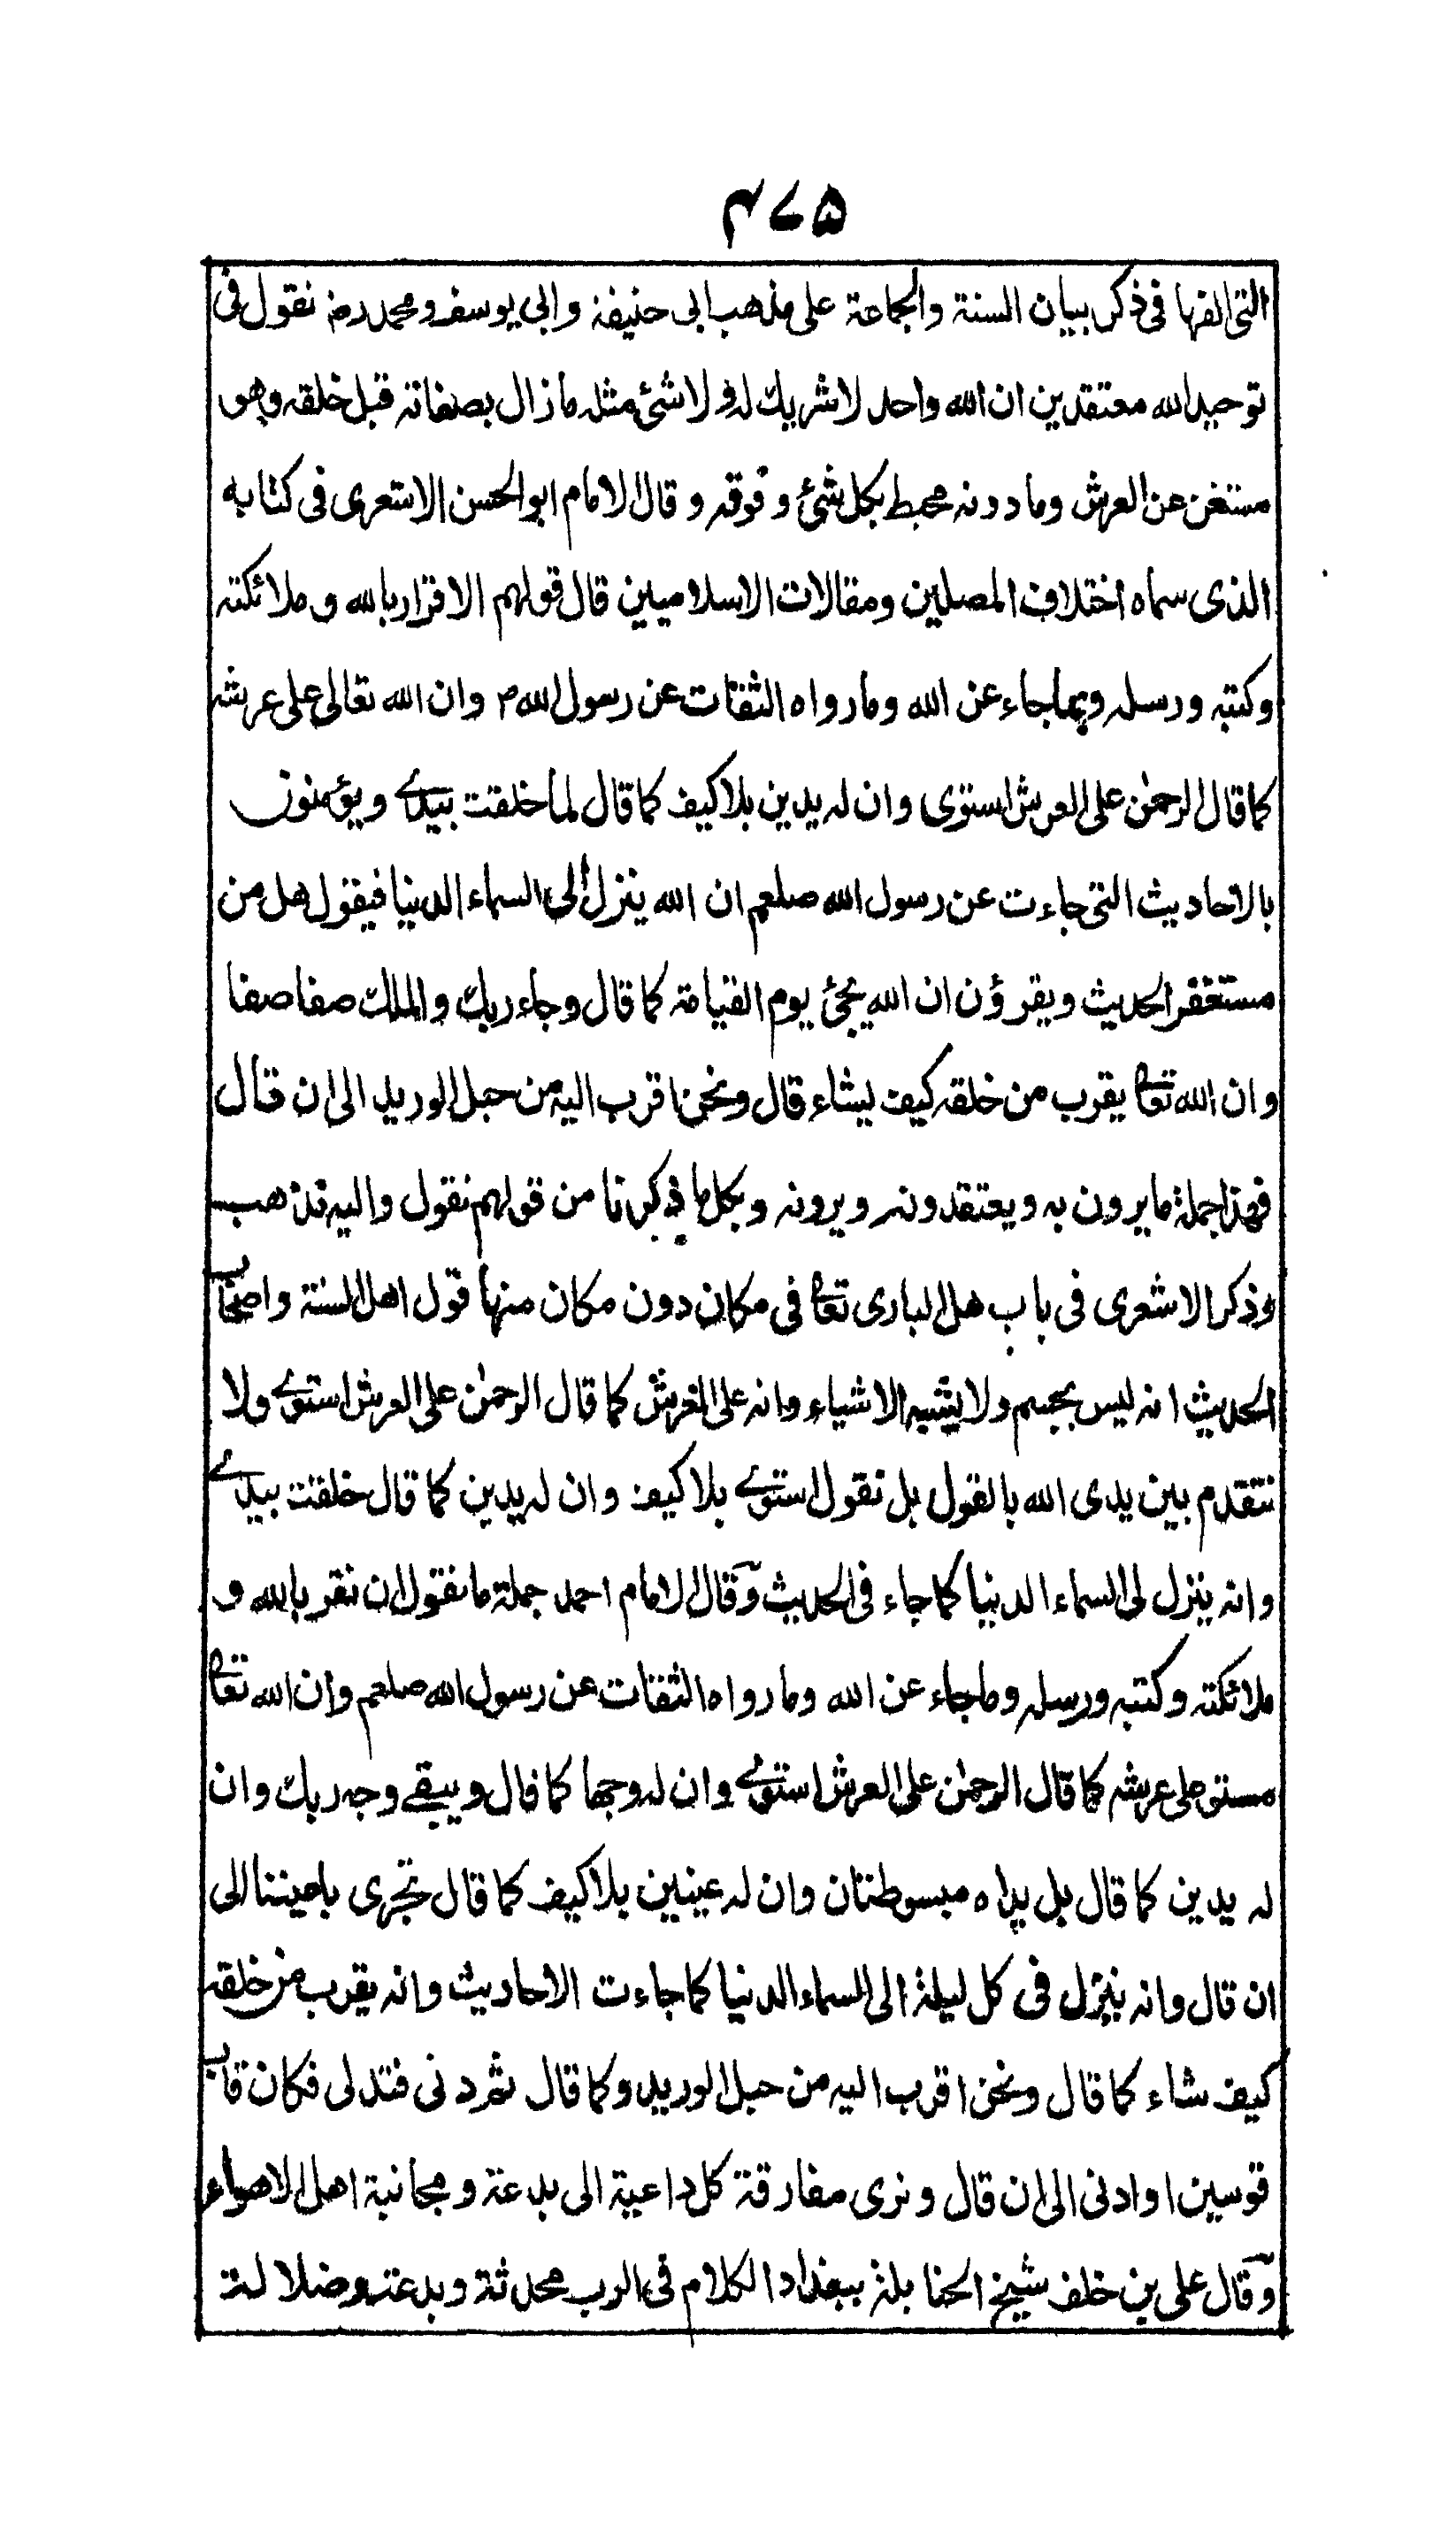 ۴۷۵
التى الفها فى ذكر بيان السنة والجماعة على مذهب ابى حنيفة وابى يوسف و محمد رض نقول فى
توحيد الله معتقدين ان الله واحد لا شريك له ولا شئ مثله ما زال بصفاته قبل خلقه وهو
مستغن عن العرش وما دونه محيط بكل شئ و فوقه و قال الامام ابو الحسن الاشعرى فى كتابه
الذى سماه اختلاف المصلين ومقالات الاسلاميين قال قولهم الاقرار بالله و ملائكته
وكتبه ورسله وبما جاء عن الله وما رواه الثقات عن رسول الله ص وان الله تعالى على عرشه
كما قال الرحمٰن على العرش استوى وان له يدين بلا كيف كما قال لما خلقت بيدے ويؤمنون
بالاحاديث التى جاءت عن رسول الله صلعم ان الله ينزل الى السماء الدنيا فيقول هل من
مستغفر الحديث ويقرؤن ان الله يجئ يوم القيامة كما قال وجاء ربك والملك صفا صفا
وان الله تعا يقرب من خلقه كيف يشاء قال ونحن اقرب اليه من حبل الوريد الى ان قال
فهذا جملة ما يرون به ويعتقدونه ويرونه وبكل ما ذكرنا من قولهم نقول واليه نذهب
وذكر الاشعرى فى باب هل البارى تعا فى مكان دون مكان منها قول اهل السنة واصحاب
الحديث انه ليس بجسم ولا يشبه الاشياء وانه على العرش كما قال الرحمٰن على العرش استوے ولا
نتقدم بين يدى الله بالقول بل نقول استوے بلا كيف وان له يدين كما قال خلقت بيدے
وانه ينزل الى السماء الدنيا كما جاء فى الحديث وقال الامام احمد جملة ما نقول ان نقر بالله و
ملائكته وكتبه ورسله وما جاء عن الله وما رواه الثقات عن رسول الله صلعم وان الله تعا
مستو على عرشه كما قال الرحمٰن على العرش استوے وان له وجها كما قال ويبقے وجه ربك وان
له يدين كما قال بل يداه مبسوطتان وان له عينين بلا كيف كما قال تجرى باعيننا الى
ان قال وانه ينزل فى كل ليلة الى السماء الدنيا كما جاءت الاحاديث وانه يقرب من خلقه
كيف شاء كما قال ونحن اقرب اليه من حبل الوريد وكما قال ثم دنى فتدلى فكان قاب
قوسين او ادنى الى ان قال ونرى مفارقة كل داعية الى بدعة و مجانبة اهل الاهواء
وقال على بن خلف شيخ الحنابلة ببغداد الكلام فى الرب محدثة وبدعة وضلالة